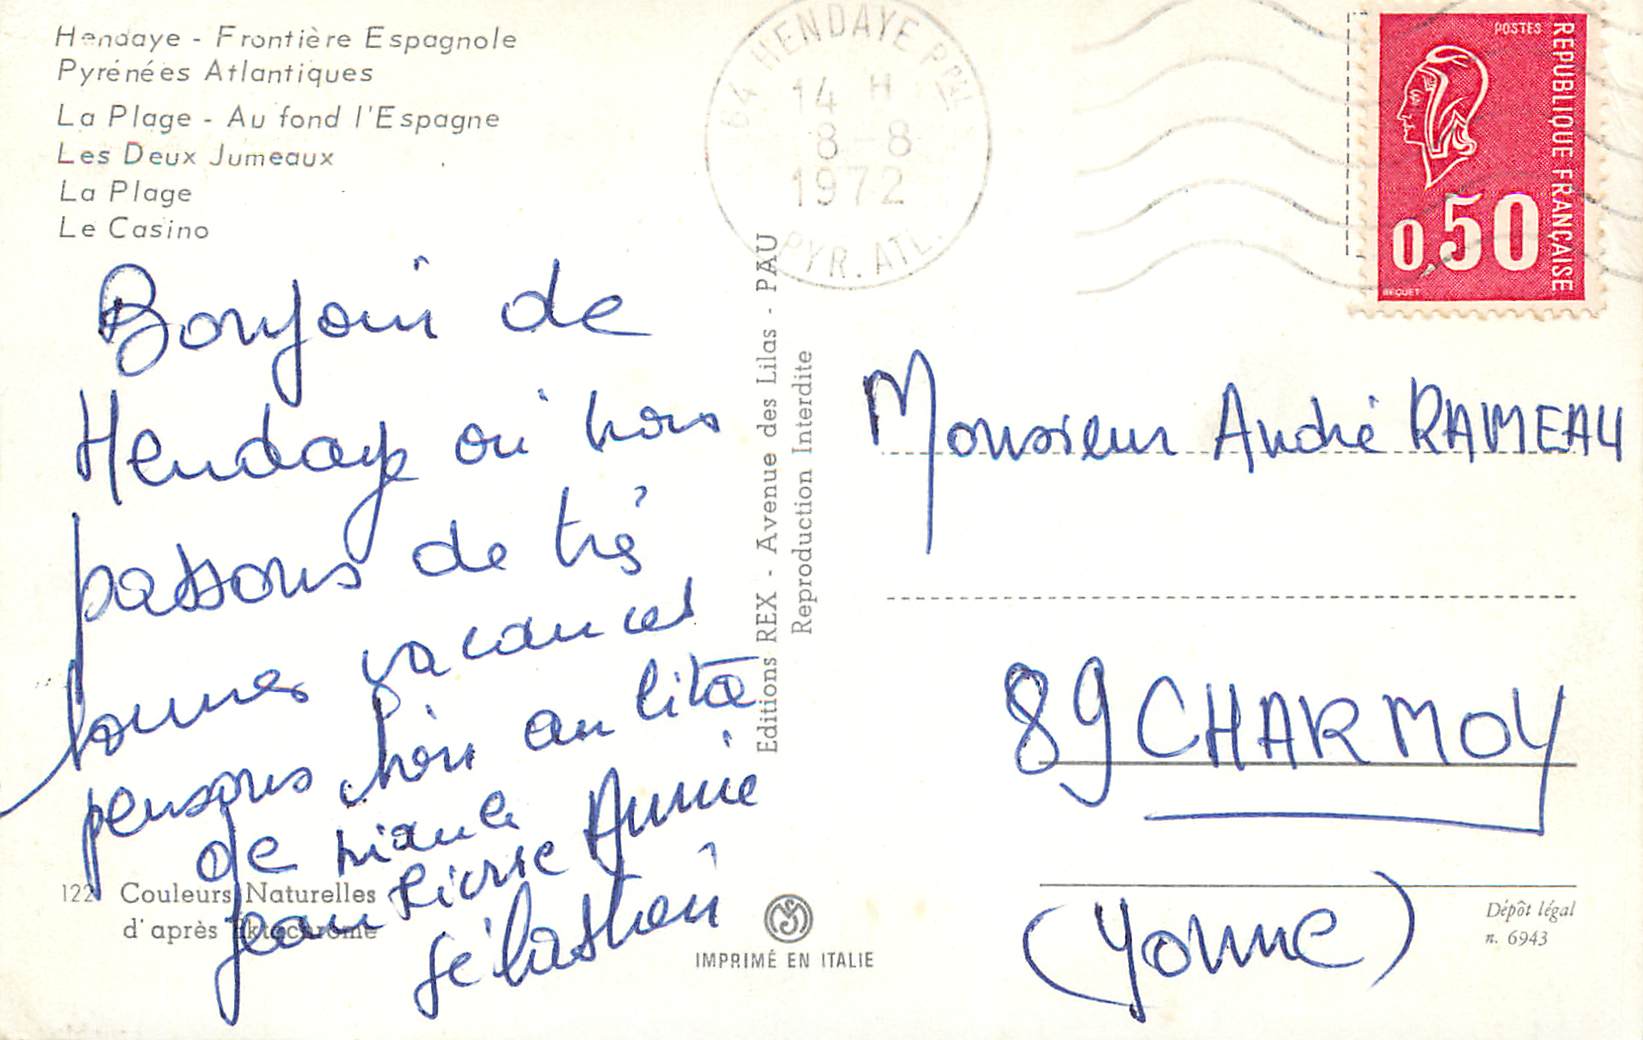 Hendaye - Frontière Espagnole
Pyrénées Atlantiques
La Plage - Au fond l'Espagne
Les Deux Jumeaux
La Plage
Le Casino
64 HENDAYE PPAL
14 H
8-8
1972
PYR. ATL.
POSTES
REPUBLIQUE FRANÇAISE
0,50
BEQUET
Bonjour de
Hendaye où nous
passons de très
bonnes vacances
pensons bien au litre
de
Jean Pierre Annie
Sébastien
Editions REX - Avenue des Lilas - PAU
Reproduction Interdite
Monsieur André RAMEAU
89 CHARMOY
(Yonne)
122 Couleurs Naturelles
d'après Ektachrome
IMPRIMÉ EN ITALIE
Dépôt légal
n. 6943